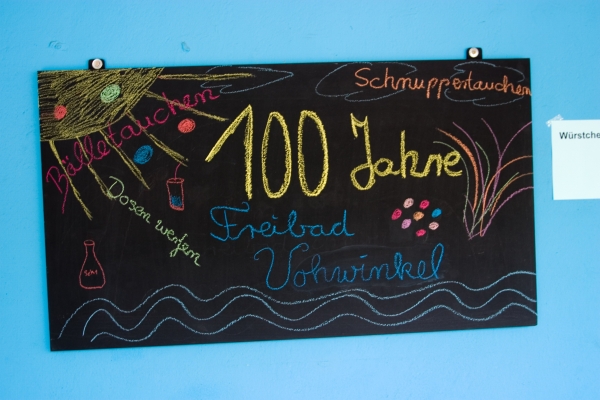 Schnuppertauchen
Bälletauchen
100 Jahre
Dosen werfen
Freibad
Vohwinkel
Würstche